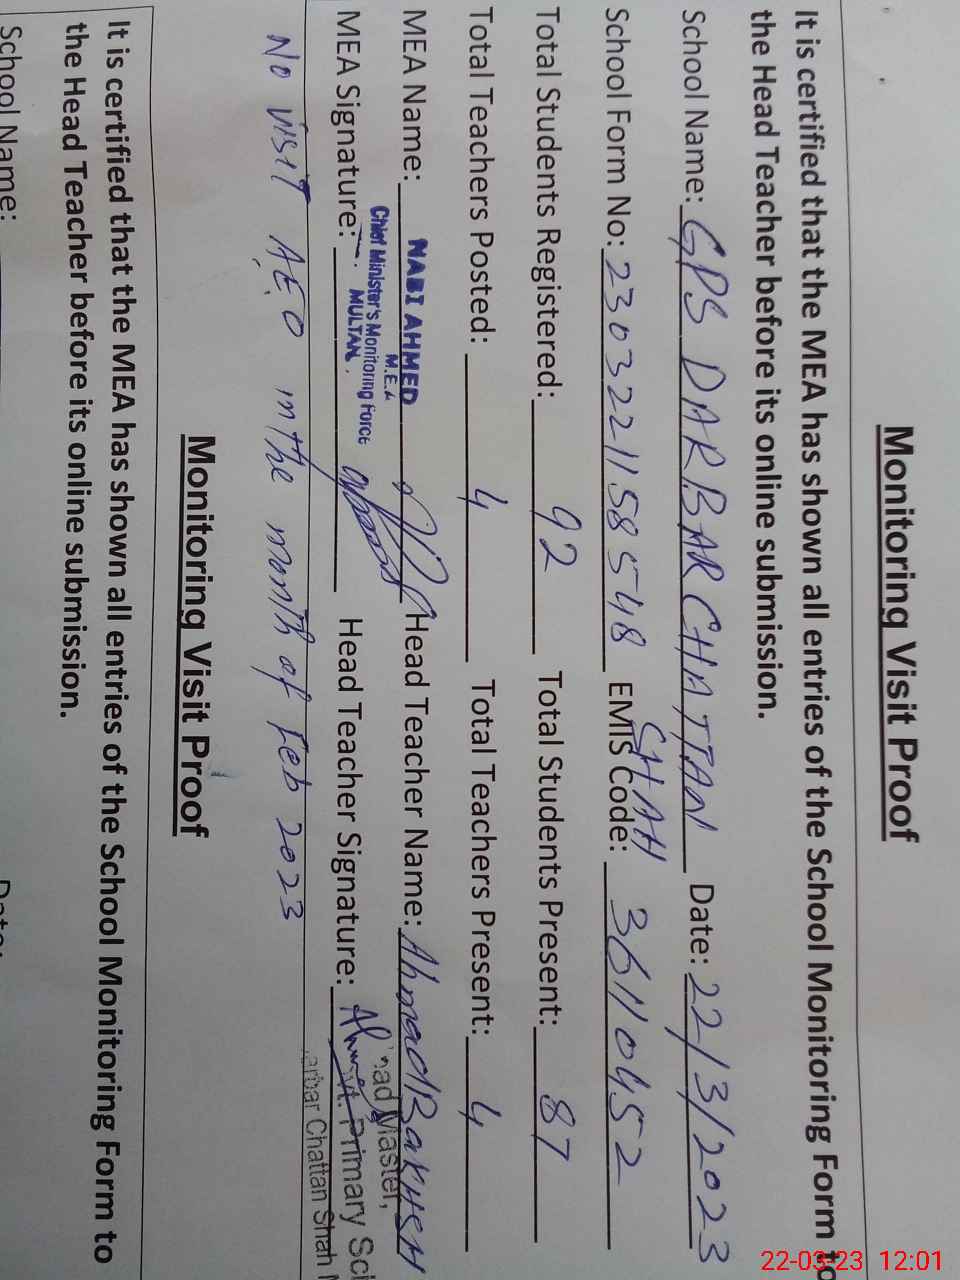 Monitoring Visit Proof
It is certified that the MEA has shown all entries of the School Monitoring Form to
the Head Teacher before its online submission.
School Name: GPS DARBAR CHATTAN Date: 22/3/2023
SHAH
School Form No: 23032211585548 EMIS Code: 36110452
Total Students Registered: 92 Total Students Present: 87
Total Teachers Posted: 4 Total Teachers Present: 4
MEA Name: NABI AHMED Head Teacher Name: Ahmad BakHSH
M.E.A
Chief Minister's Monitoring Force
MULTAN.
MEA Signature: Head Teacher Signature:
Master,
Primary
Chattan Shah
No visit AEO in the month of Feb 2023
Monitoring Visit Proof
It is certified that the MEA has shown all entries of the School Monitoring Form to
the Head Teacher before its online submission.
School Name: Date:
22-03-23 12:01